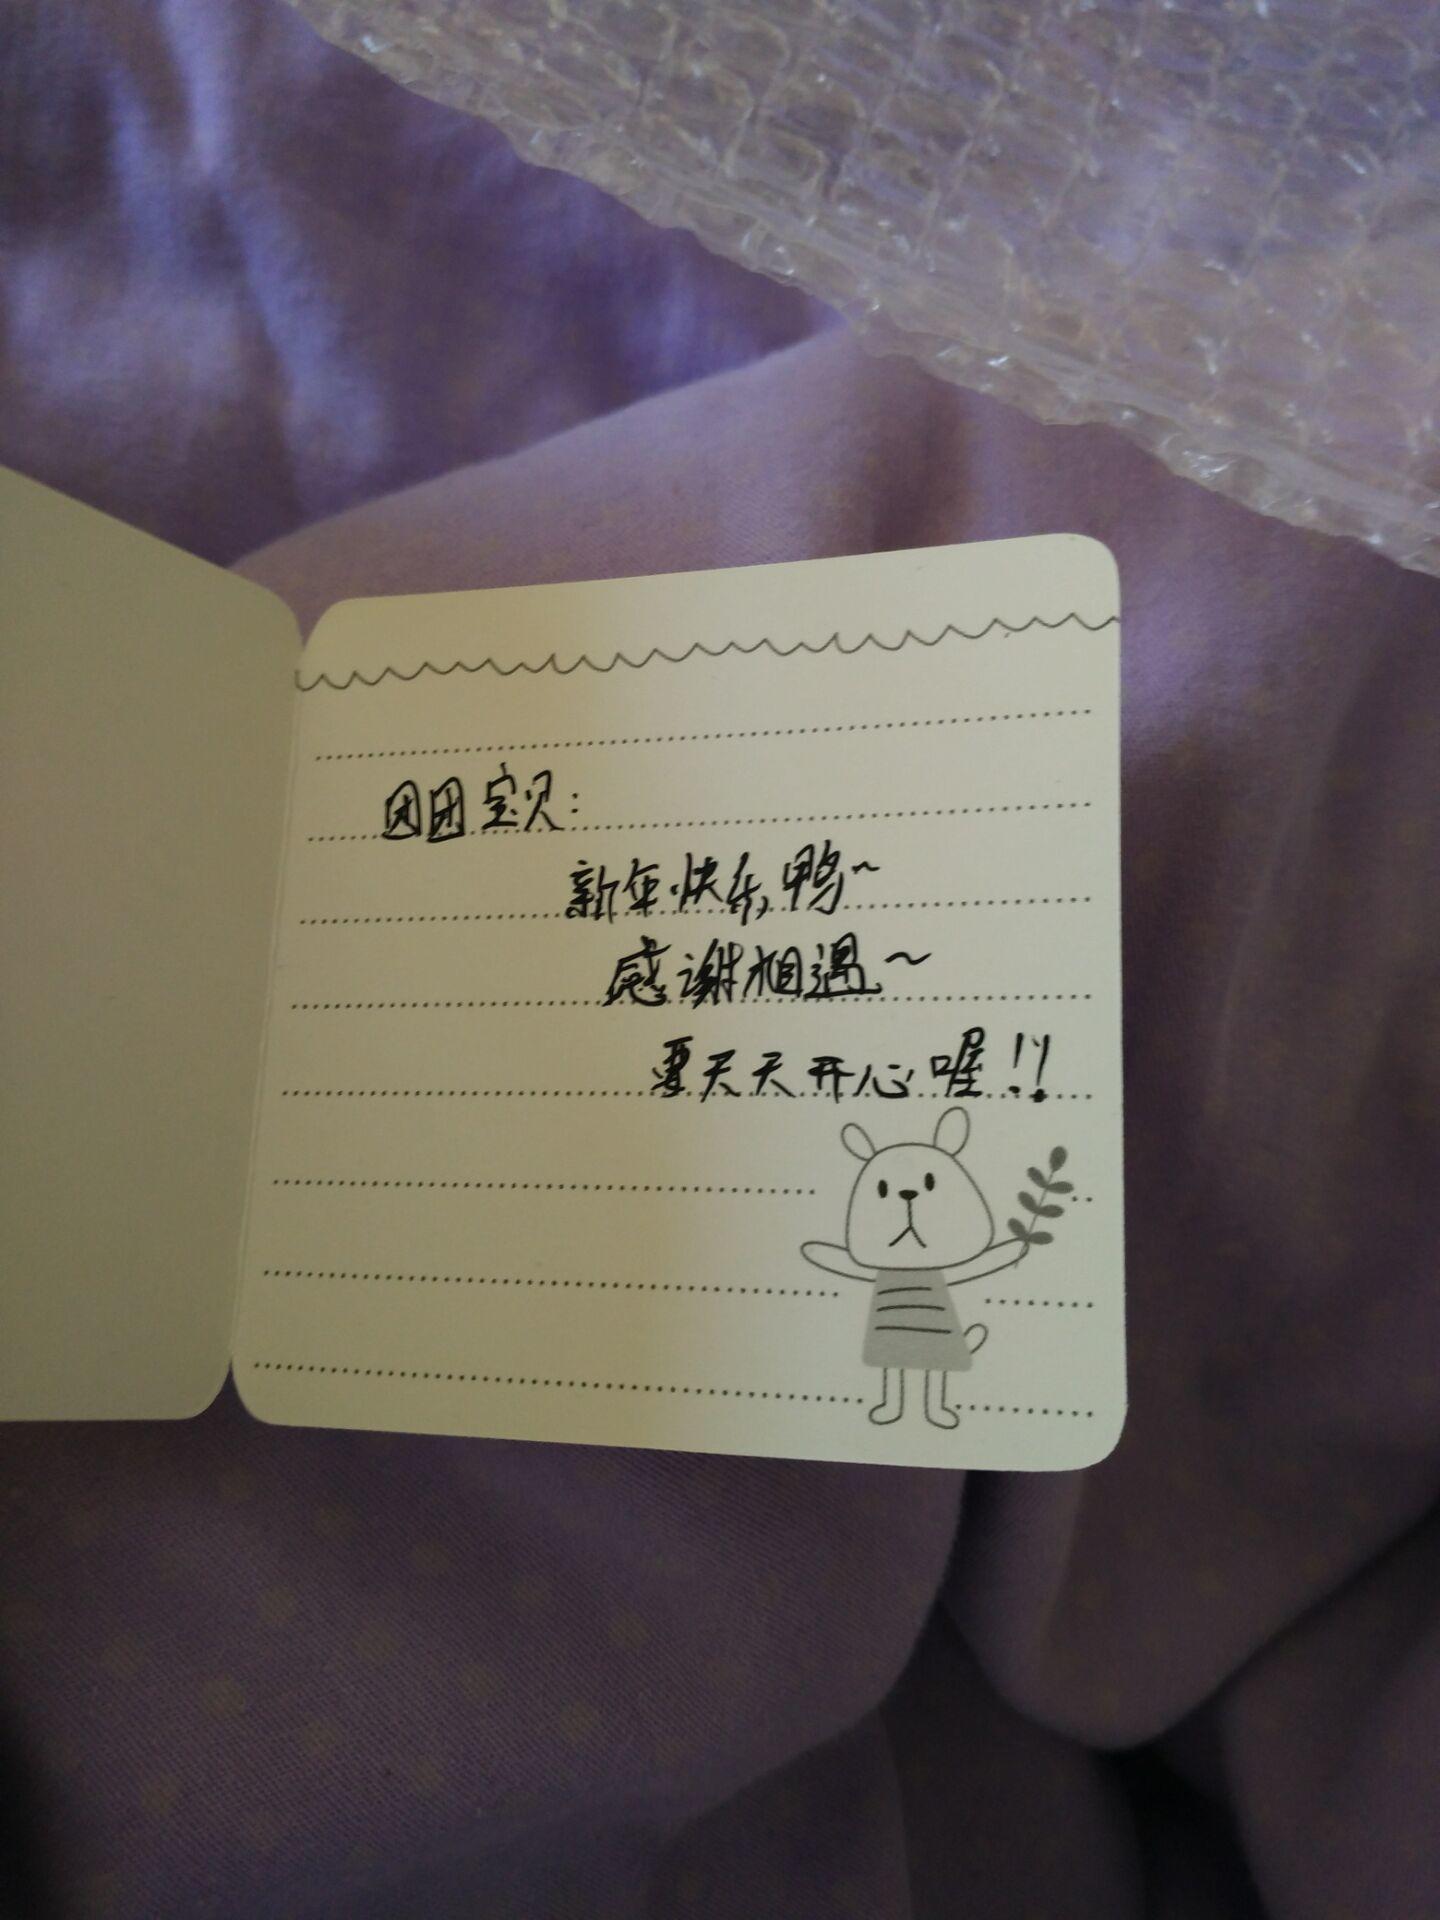 团团宝贝：
新年快乐鸭~
感谢相遇~
要天天开心喔!!